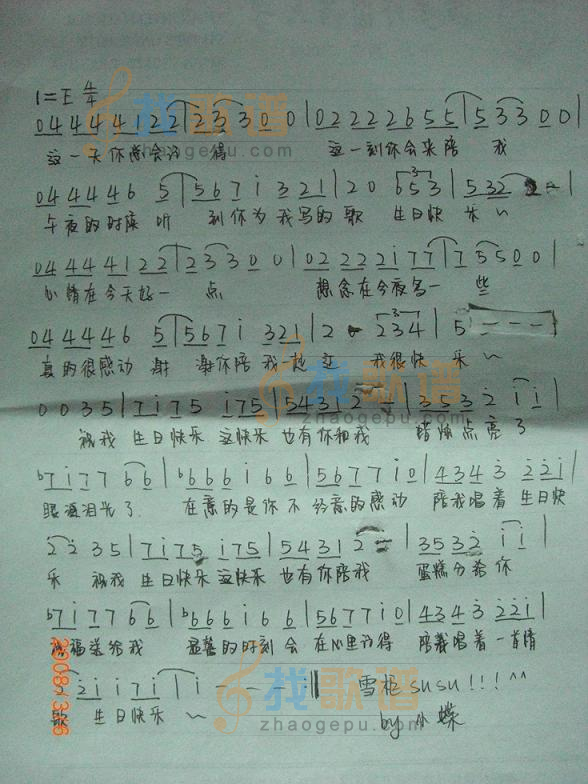 1=E 4/4
04 4 4 4 1 2 2 | 2 3 3 0 0 | 0 2 2 2 2 6 5 5 | 5 3 3 0 0 |
这一天你想会记 得 这一刻你会来陪 我
04 4 4 4 6 5 | 5 6 7 i 3 2 1 | 2 0 6 5 3 | 5 3 2 - |
午夜的时候 听 到你为我写的歌 生日快 乐 ~
04 4 4 4 1 2 2 | 2 3 3 0 0 | 0 2 2 2 2 i 7 7 | 7 5 5 0 0 |
心情在今天好一 点 想念在今夜多一 些
04 4 4 4 6 5 | 5 6 7 i 3 2 1 | 2 - 2 3 4 | 5 - - - |
真的很感动 谢 谢你陪我 我很快 乐 ~
0 0 3 5 | 7 i 7 5 i 7 5 | 5 4 3 1 2 - | 3 5 3 2 i i |
祝我 生日快乐 这快乐 也有你和我 蜡烛点亮了
b7 i 7 7 6 6 | b6 6 6 i 6 6 | 5 6 7 7 i 0 | 4 3 4 3 2 2 i |
眼泪泪光了 在意的是你不 经意的感动 陪我唱着 生日快
2 2 3 5 | 7 i 7 5 i 7 5 | 5 4 3 1 2 - | 3 5 3 2 i i |
乐 祝我 生日快乐 这快乐 也有你陪我 蛋糕分给你
b7 i 7 7 6 6 | b6 6 6 i 6 6 | 5 6 7 7 i 0 | 4 3 4 3 2 2 i |
福送给我 的时刻 会 在心里记得 陪我唱着 一首情
2 i i 7 i | i - - - ‖ 雪柜susu!!!^^
歌 生日快乐 ~ by 小蝶
找歌谱
zhaogepu.com